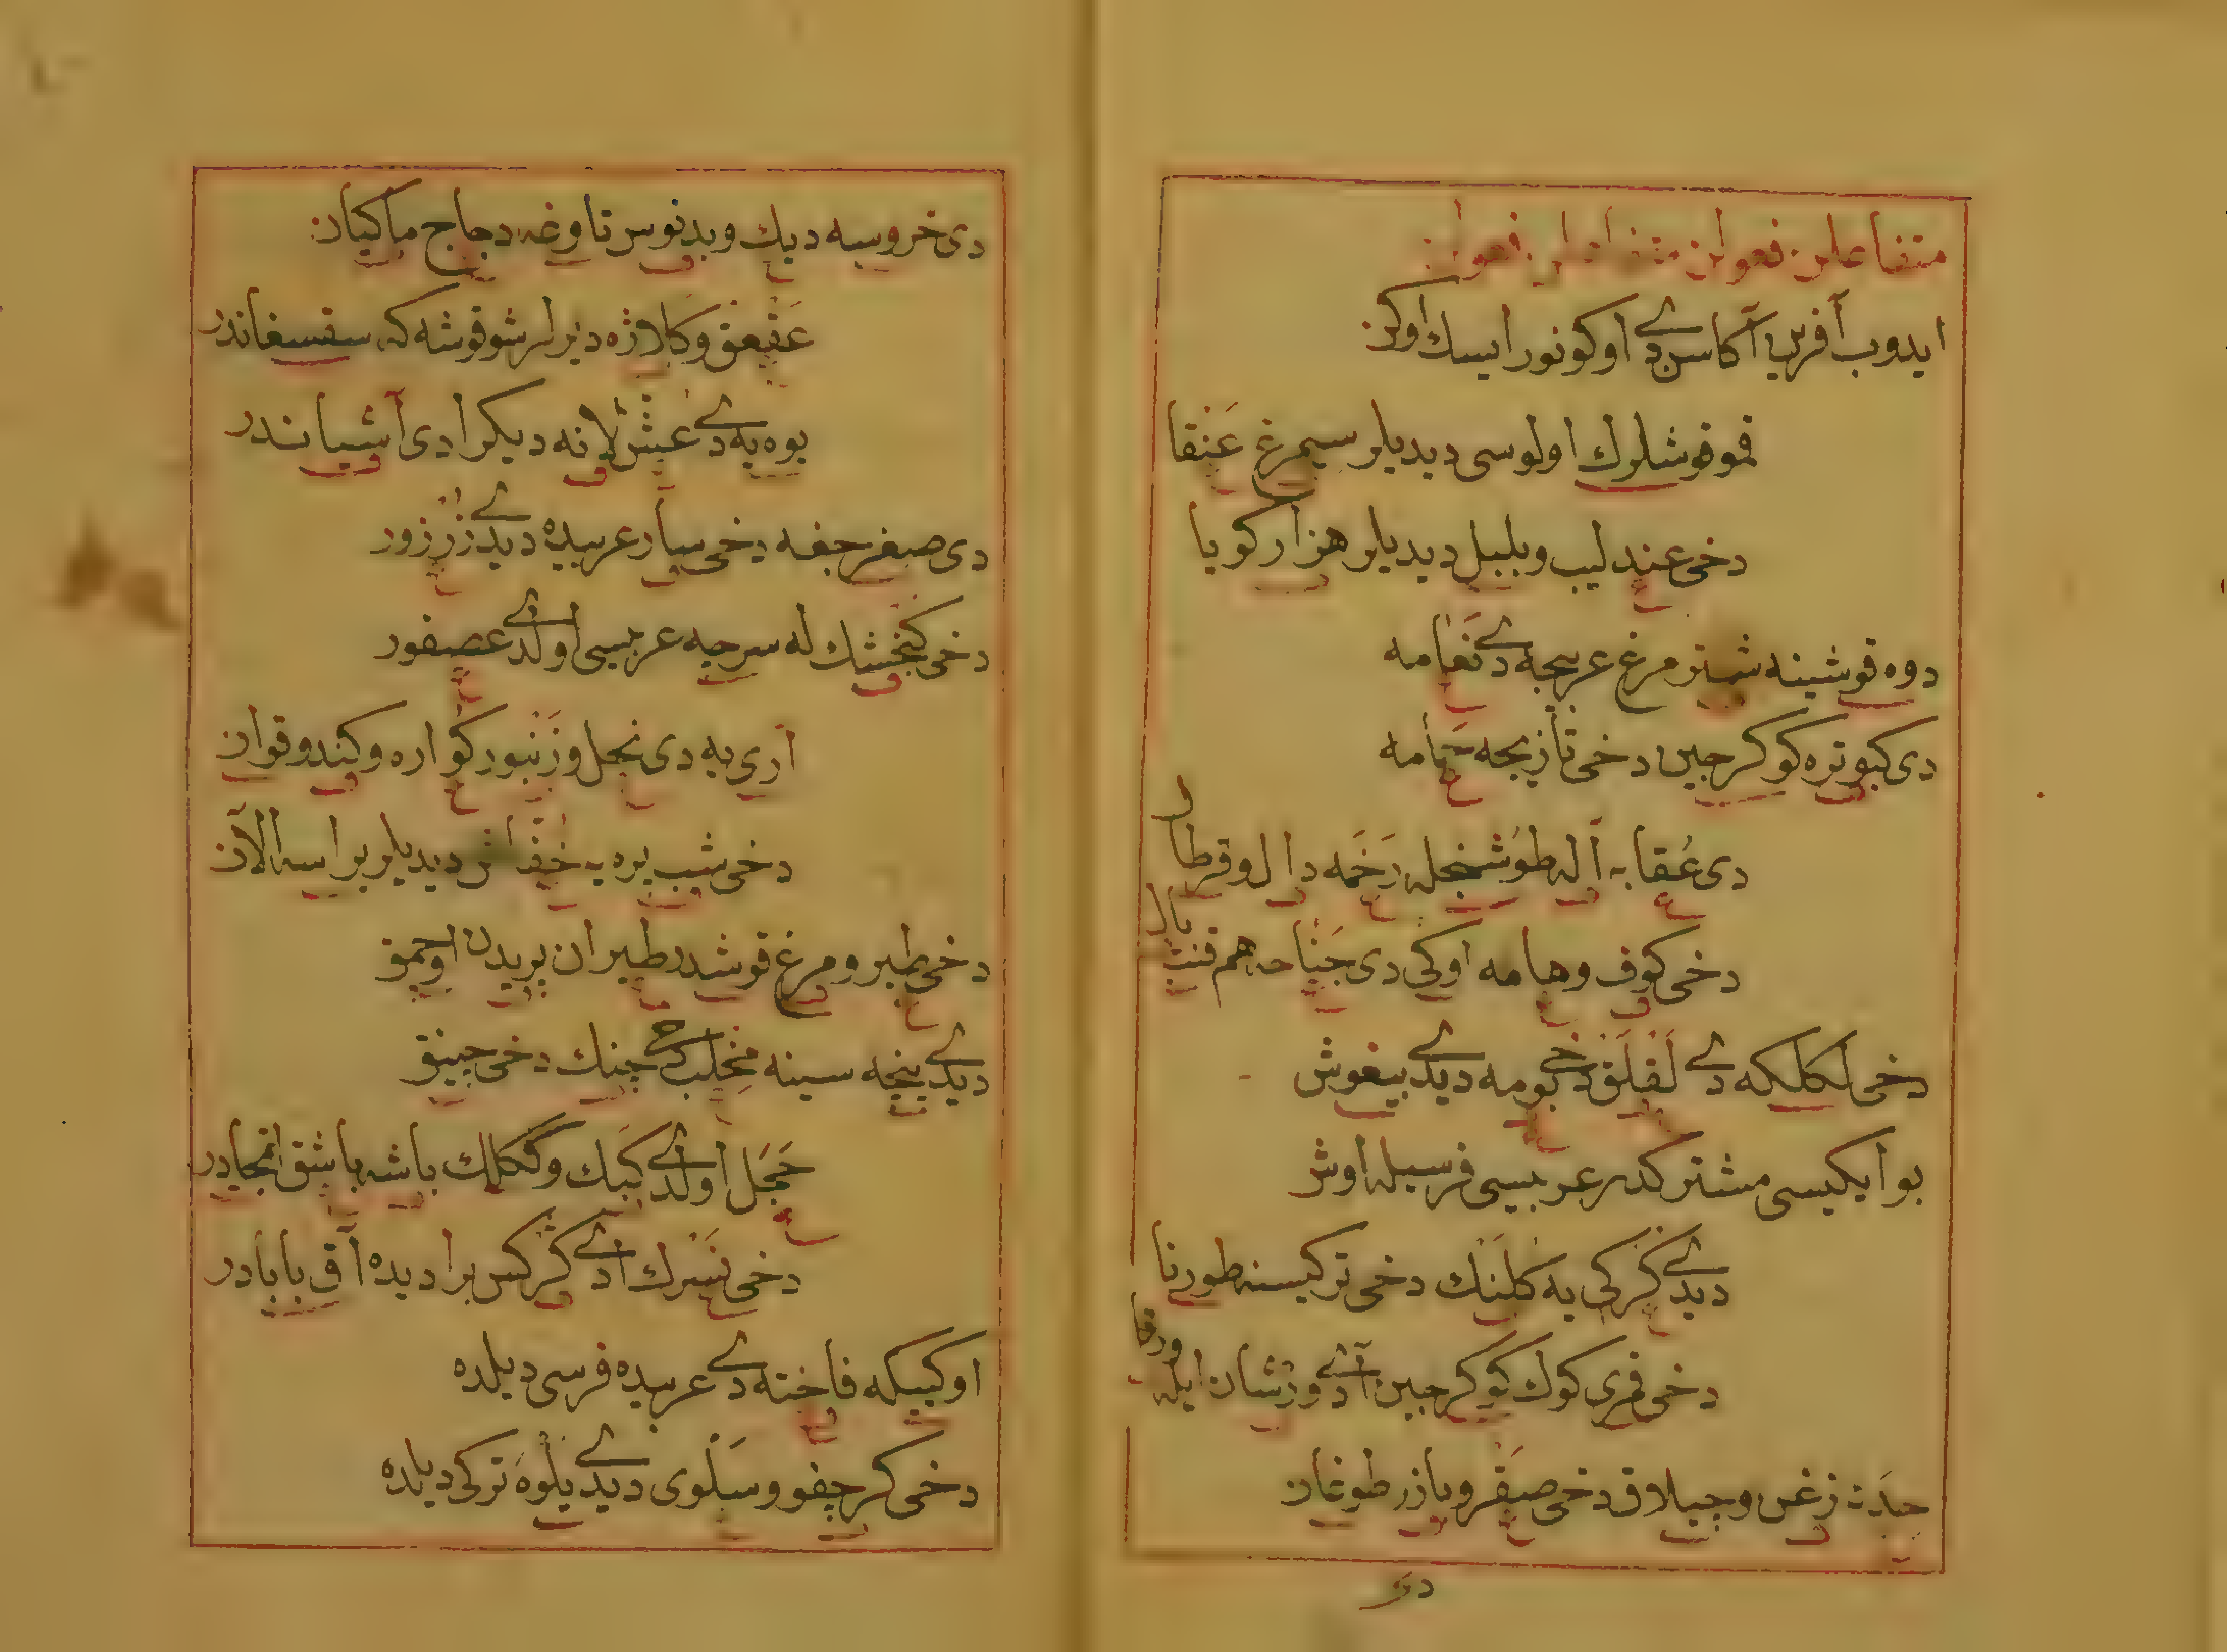 متفاعلن فعولن متفاعلن فعولن
ایدوب آفرین آكا سن دی اوكونور ایسك اوكن
قمو قوشلرك اولوسی دیدیلر سیمرغ عَنقا
دخی عندلیب و بلبل دیدیلر هزار كویا
دوه قوشینه شتر مرغ عربجه دی نَعامه
دی كبوتره كوكرجین دخی تازیجه حَمامه
دی عُقابه آله طوشنجله رَخَمه دال و قرطال
دخی كوف و هامه اوكی دی جَناحه هم قنت بال
دخی لكلكه دی لَقلَق دخی بومه دیدی بیغوش
بو ایكیسی مشتركدر عربیسی فرسیله اوش
دیدی كركی یه كلنك دخی تركیسنه طورنا
دخی قمری كوك كوكرجین آدی ورشان ایله ورقا
حِدَت زغن و چیلاق دخی صَقر و باز طوغان
دی
دی خروسه دیك و بدنوس تاوغه دجاج ماكیان
عَقعق و كلاژه دیرلر شو قوشه كه سقسغاندر
یوه یه دی عُش لانه دیكر ادی آشیاندر
دی صغرجغه دخی سار عربیده دیدی زُرزور
دخی كنجشك له سرچه عربیسی اولدی عصفور
آری یه دی نحل و زَنبور كواره و كندو قوان
دخی شب پره یه خفاش دیدیلر یراسه الان
دخی طیر و مرغ قوشدر طیران پریدن اوچمق
دیدی پنچه سینه مخلب دخی چنك دخی چینق
حَجَل اولدی كبك و ككلك باشه باشق اتمجادر
دخی نَسرك آدی كركس برا دیده آق بابادر
اوكییكه فاخته دی عربیده فرسی دیلده
دخی كرچفو و سَلوی دیدی یلوه تركی دیلده